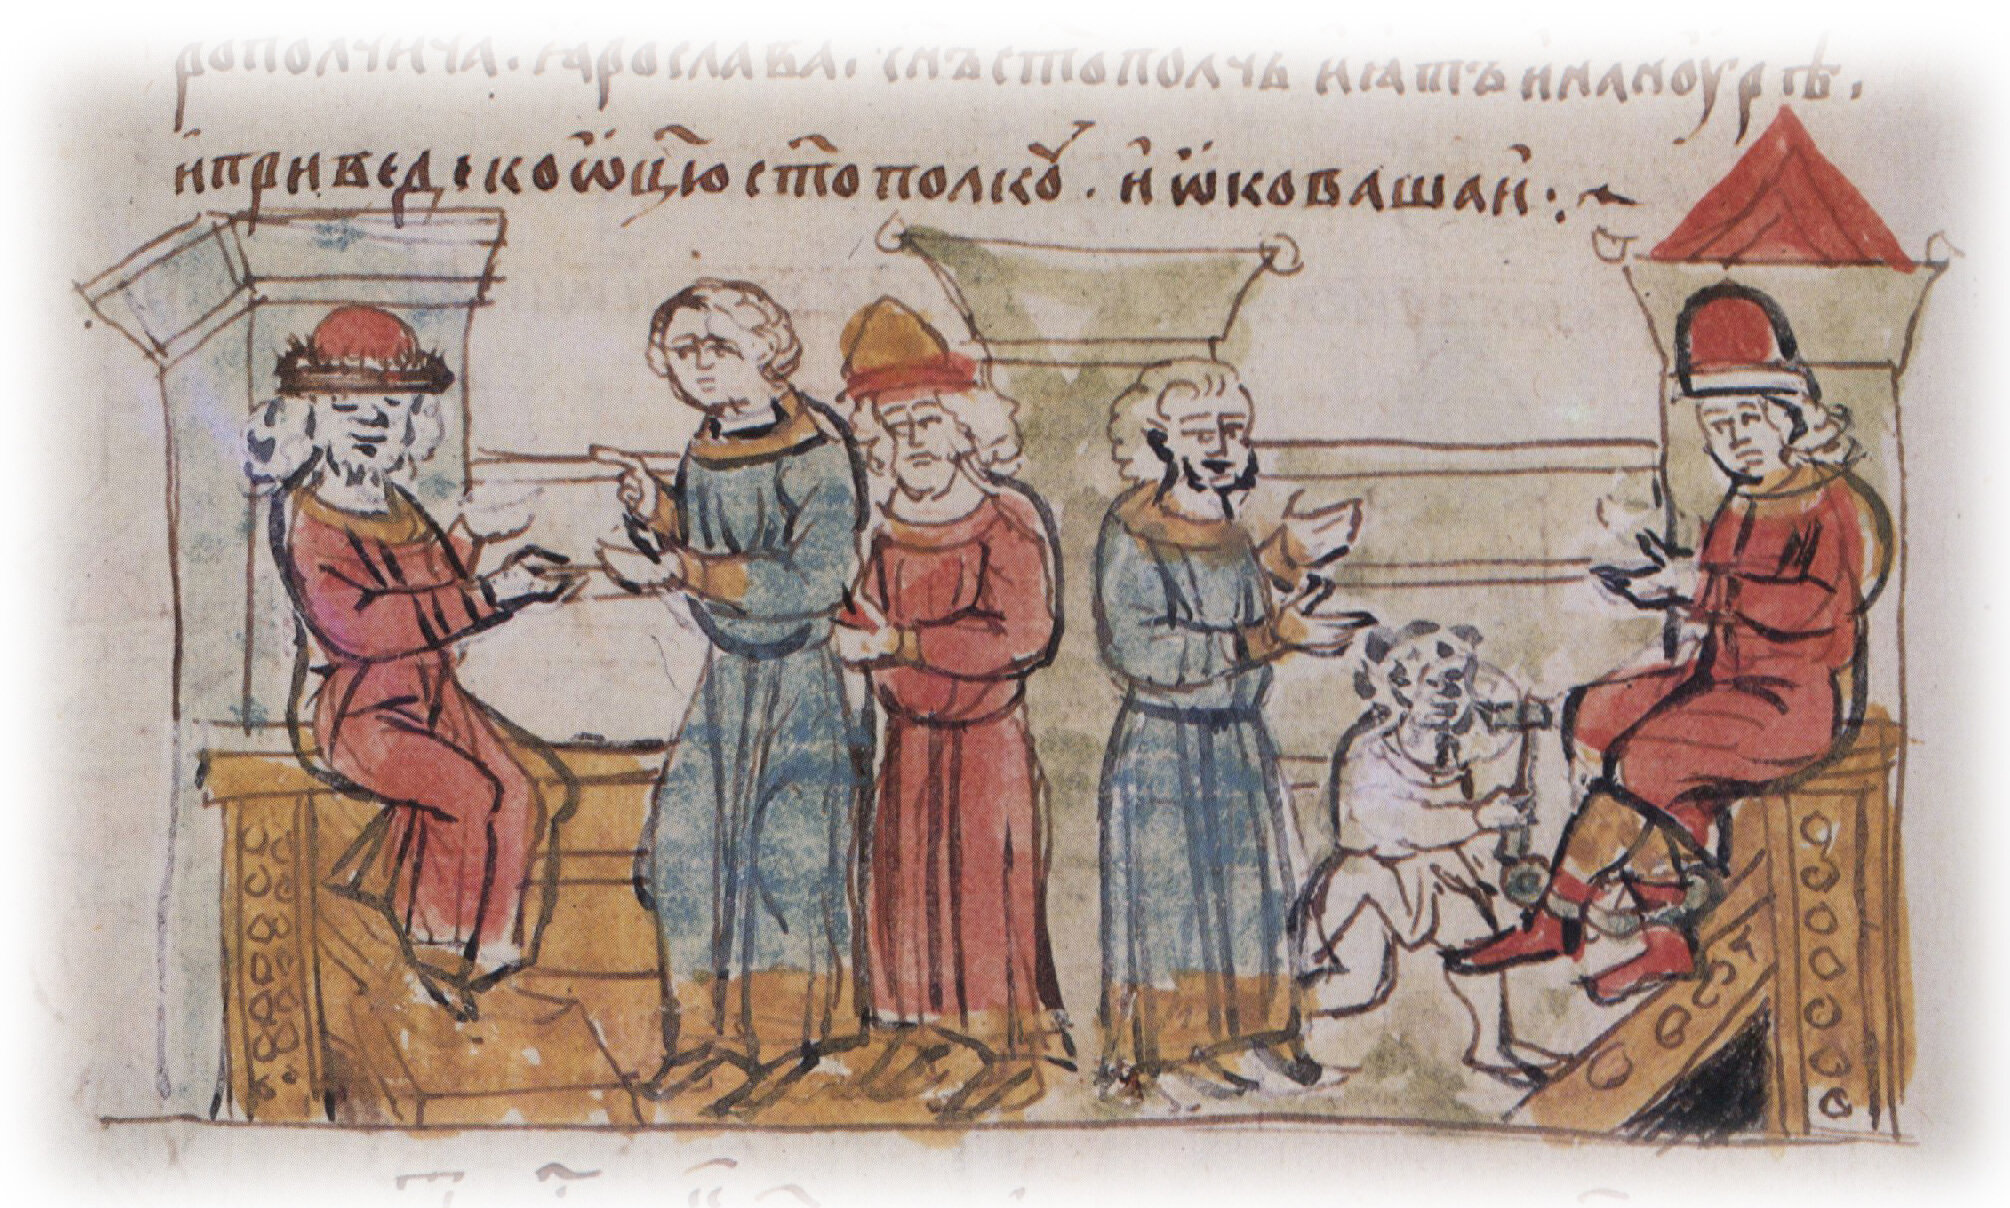 рополчича · ꙗрослава · сн҃ъ ст҃ополчь и ꙗтъ и на ноурѣ ·
и приведе ко ѿц҃ю ст҃ополкꙋ · и ѿковаша и ·:~